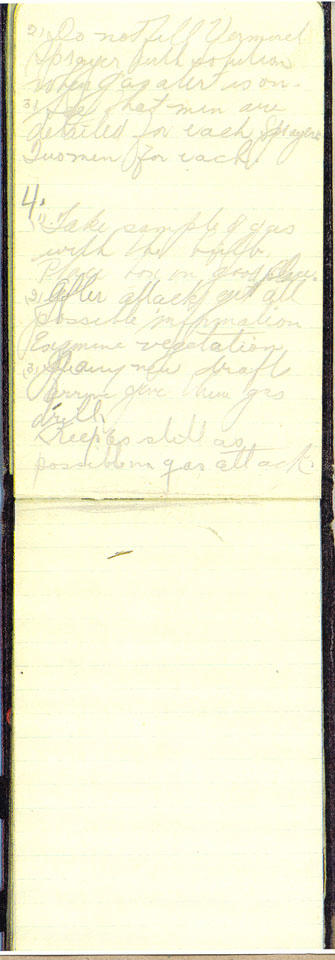 2) Do not fill Vermorel
Sprayer with solution
when gas alert is on.
3) See that men are
detailed for each Sprayer
Two men for each.
4.
1) Take sample of gas
with the bulb.
Place box in good place.
2) After attack get all
possible information
Examine vegetation
3) If any new draft
arrive give them gas
drill.
Keep as still as
possible in gas attack.